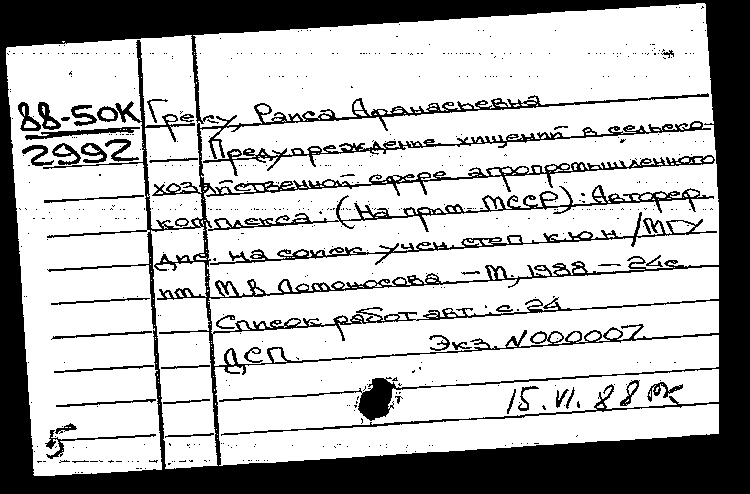 88-50К
2992
Греку, Раиса Афанасьевна
Предупреждение хищений в сельско-
хозяйственной сфере агропромышленного
комплекса: (На прим. МССР): Автореф.
дис. на соиск учен. степ. к.ю.н /МГУ
им. М.В Ломоносова. — М., 1988. — 24с.
Список работ авт.: с. 24
ДСП. Экз. N000007.
15.VI.88
5